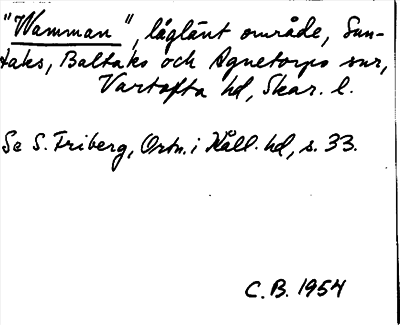 "Wamman", låglänt område, Sun-
taks, Baltaks och Agnetorps snr,
Vartofta hd, Skar. l.
Se S. Friberg, Ortn. i Kåll. hd, s. 33.
C.B. 1954